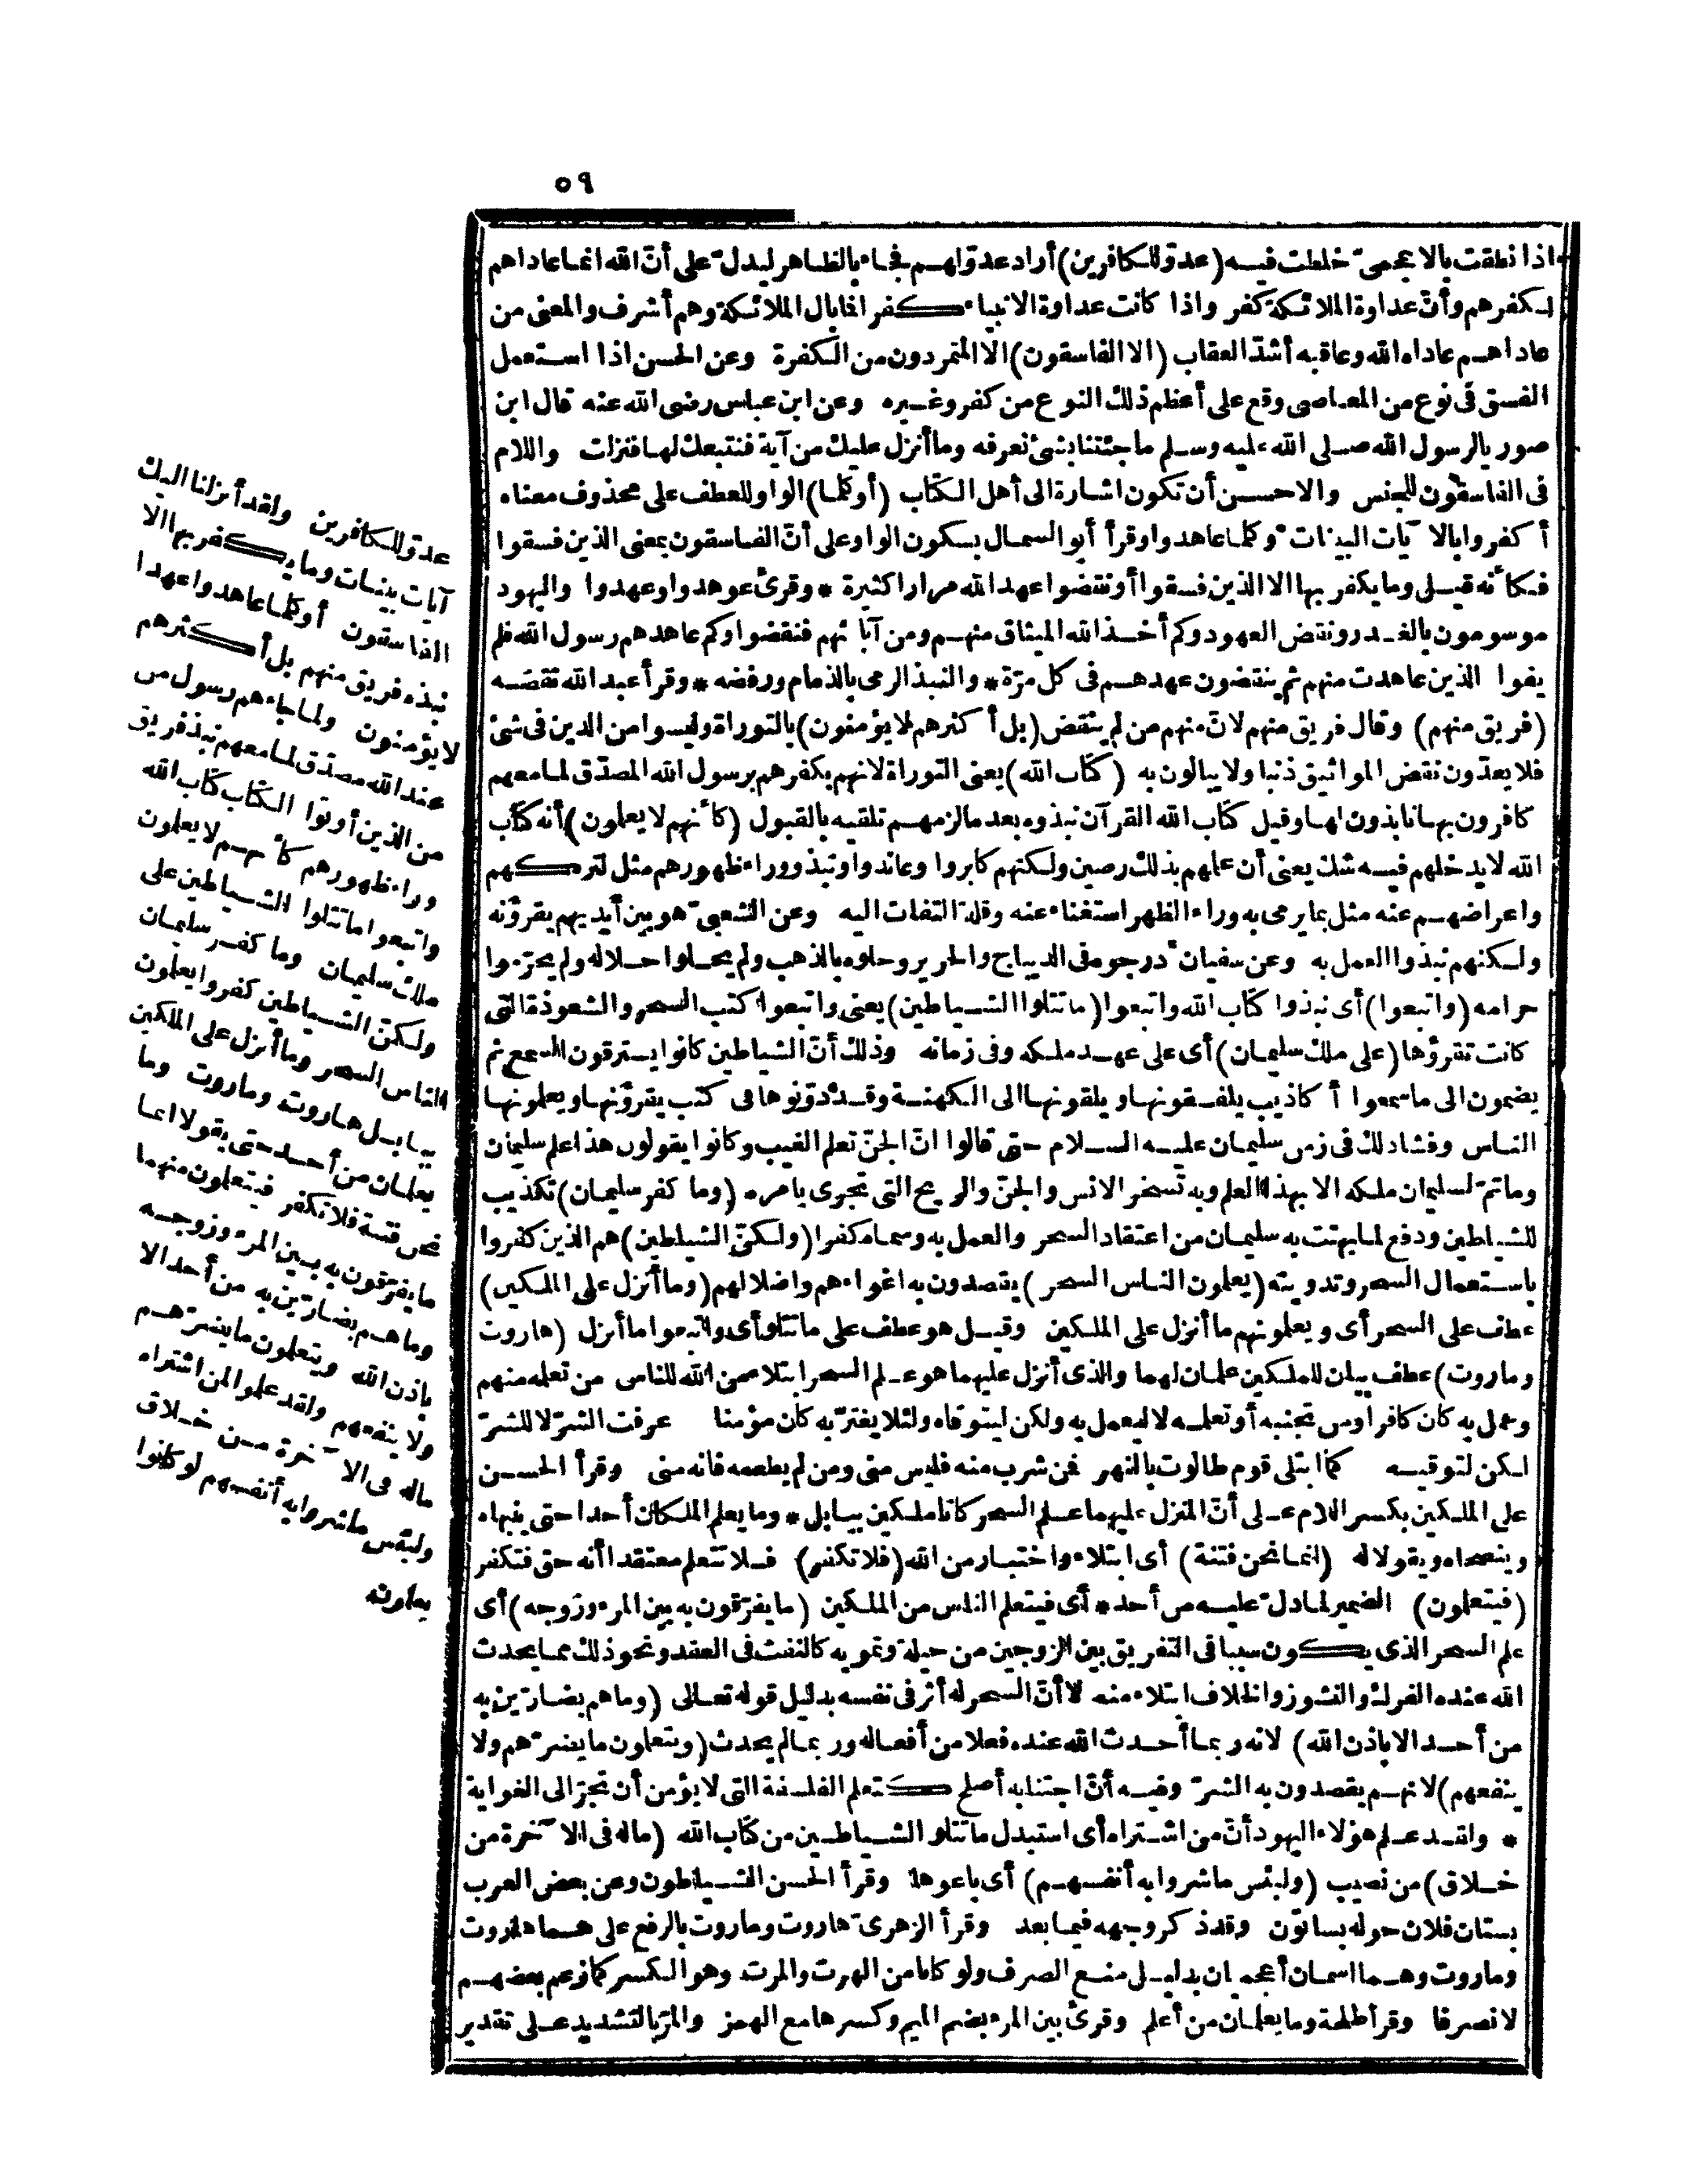 ٥٩
اذا نطقت بالاعجمىّ خلطت فيه (عدوّ للكافرين) أراد عدوّ لهم فجاء بالظاهر ليدلّ على أنّ الله انما عاداهم
لكفرهم وأنّ عداوة الملائكة كفر واذا كانت عداوة الانبياء كفرا فما بال الملائكة وهم أشرف والمعنى من
عاداهم عاداه الله وعاقبه أشدّ العقاب (الا الفاسقون) الا المتمردون من الكفرة وعن الحسن اذا استعمل
الفسق فى نوع من المعاصى وقع على أعظم ذلك النوع من كفر وغيره وعن ابن عباس رضى الله عنه قال ابن
صوريا لرسول الله صلى الله عليه وسلم ما جئتنا بشئ نعرفه وما أنزل عليك من آية فنتبعك لها فنزلت واللام
فى الفاسقون للجنس والاحسن أن تكون اشارة الى أهل الكتاب (أوكلما) الواو للعطف على محذوف معناه
أكفروا بالآيات البينات وكلما عاهدوا وقرأ أبو السمال بسكون الواو على أنّ الفاسقون بمعنى الذين فسقوا
فكأنه قيل وما يكفر بها الا الذين فسقوا أو نقضوا عهد الله مرارا كثيرة * وقرئ عوهدوا وعهدوا واليهود
موسومون بالغدر ونقض العهود وكم أخذ الله الميثاق منهم ومن آبائهم فنقضوا وكم عاهدهم رسول الله فلم
يفوا الذين عاهدت منهم ثم ينقضون عهدهم فى كل مرّة * والنبذ الرمى بالذمام ورفضه * وقرأ عبد الله نقضه
(فريق منهم) وقال فريق منهم لانّ منهم من لم ينقض (بل أكثرهم لا يؤمنون) بالتوراة وليسوا من الدين فى شئ
فلا يعدّون نقض المواثيق ذنبا ولا يبالون به (كتاب الله) يعنى التوراة لانهم بكفرهم برسول الله المصدّق لما معهم
كافرون بها نابذون لها وقيل كتاب الله القرآن نبذوه بعد ما لزمهم تلقيه بالقبول (كأنهم لا يعلمون) أنه كتاب
الله لا يدخلهم فيه شك يعنى أن علمهم بذلك رصين ولكنهم كابروا وعاندوا ونبذوا وراء ظهورهم مثل لتركهم
واعراضهم عنه مثل بما يرمى به وراء الظهر استغناء عنه وقلة التفات اليه وعن الشعبىّ هو بين أيديهم يقرؤنه
ولكنهم نبذوا العمل به وعن سفيان أدرجوه فى الديباج والحرير وحلوه بالذهب ولم يحلوا حلاله ولم يحرّموا
حرامه (واتبعوا) أى نبذوا كتاب الله واتبعوا (ما تتلوا الشياطين) يعنى واتبعوا كتب السحر والشعوذة التى
كانت تقرؤها (على ملك سليمان) أى على عهد ملكه وفى زمانه وذلك أنّ الشياطين كانوا يسترقون السمع ثم
يضمون الى ما سمعوا أكاذيب يلفقونها ويلقونها الى الكهنة وقد دوّنوها فى كتب يقرؤنها ويعلمونها
الناس وفشا ذلك فى زمن سليمان عليه السلام حتى قالوا انّ الجنّ تعلم الغيب وكانوا يقولون هذا علم سليمان
وما تمّ لسليمان ملكه الا بهذا العلم وبه تسخر الانس والجنّ والريح التى تجرى بامره (وما كفر سليمان) تكذيب
للشياطين ودفع لما بهتت به سليمان من اعتقاد السحر والعمل به وسماه كفرا (ولكنّ الشياطين) هم الذين كفروا
باستعمال السحر وتدوينه (يعلمون الناس السحر) يقصدون به اغواءهم واضلالهم (وما أنزل على الملكين)
عطف على السحر أى ويعلمونهم ما أنزل على الملكين وقيل هو عطف على ما تتلو أى واتبعوا ما أنزل (هاروت
وماروت) عطف بيان للملكين علمان لهما والذى أنزل عليهما هو علم السحر ابتلاء من الله للناس من تعلمه منهم
وعمل به كان كافرا ومن تجنبه أو تعلمه لا ليعمل به ولكن ليتوقاه ولئلا يغترّ به كان مؤمنا عرفت الشرّ لا للشرّ
لكن لتوقيه كما ابتلى قوم طالوت بالنهر فمن شرب منه فليس منى ومن لم يطعمه فانه منى وقرأ الحسن
على الملكين بكسر اللام على أنّ المنزل عليهما علم السحر كانا ملكين ببابل * وما يعلم الملكان أحدا حتى ينبهاه
وينصحاه ويقولا له (انما نحن فتنة) أى ابتلاء واختبار من الله (فلا تكفر) فلا تتعلم معتقدا أنه حق فتكفر
(فيتعلمون) الضمير لما دلّ عليه من أحد * أى فيتعلم الناس من الملكين (ما يفرّقون به بين المرء وزوجه) أى
علم السحر الذى يكون سببا فى التفريق بين الزوجين من حيلة وتمويه كالنفث فى العقد ونحو ذلك مما يحدث
الله عنده الفرك والنشوز والخلاف ابتلاء منه لا أنّ السحر له أثر فى نفسه بدليل قوله تعالى (وما هم بضارّين به
من أحد الا باذن الله) لانه ربما أحدث الله عنده فعلا من أفعاله وربما لم يحدث (ويتعلمون ما يضرّهم ولا
ينفعهم) لانهم يقصدون به الشرّ وفيه أنّ اجتنابه أصلح كتعلم الفلسفة التى لا يؤمن أن تجرّ الى الغواية
* ولقد علم هؤلاء اليهود أنّ من اشتراه أى استبدل ما تتلو الشياطين من كتاب الله (ماله فى الآخرة من
خلاق) من نصيب (ولبئس ما شروا به أنفسهم) أى باعوها وقرأ الحسن الشياطون وعن بعض العرب
بستان فلان حوله بساتون وقد ذكر وجهه فيما بعد وقرأ الزهرىّ هاروت وماروت بالرفع على هما هاروت
وماروت وهما اسمان أعجميان بدليل منع الصرف ولو كانا من الهرت والمرت وهو الكسر كما زعم بعضهم
لانصرفا وقرأ طلحة وما يعلمان من أعلم وقرئ بين المرء بضم الميم وكسرها مع الهمز والمرّ بالتشديد على تقدير
عدوّ للكافرين ولقد أنزلنا اليك
آيات بينات وما يكفر بها الا
الفاسقون أوكلما عاهدوا عهدا
نبذه فريق منهم بل أكثرهم
لا يؤمنون ولما جاءهم رسول من
عند الله مصدّق لما معهم نبذ فريق
من الذين أوتوا الكتاب كتاب الله
وراء ظهورهم كأنهم لا يعلمون
واتبعوا ما تتلوا الشياطين على
ملك سليمان وما كفر سليمان
ولكنّ الشياطين كفروا يعلمون
الناس السحر وما أنزل على الملكين
ببابل هاروت وماروت وما
يعلمان من أحد حتى يقولا انما
نحن فتنة فلا تكفر فيتعلمون منهما
ما يفرّقون به بين المرء وزوجه
وما هم بضارّين به من أحد الا
باذن الله ويتعلمون ما يضرّهم
ولا ينفعهم ولقد علموا لمن اشتراه
ماله فى الآخرة من خلاق
ولبئس ما شروا به أنفسهم لو كانوا
يعلمون